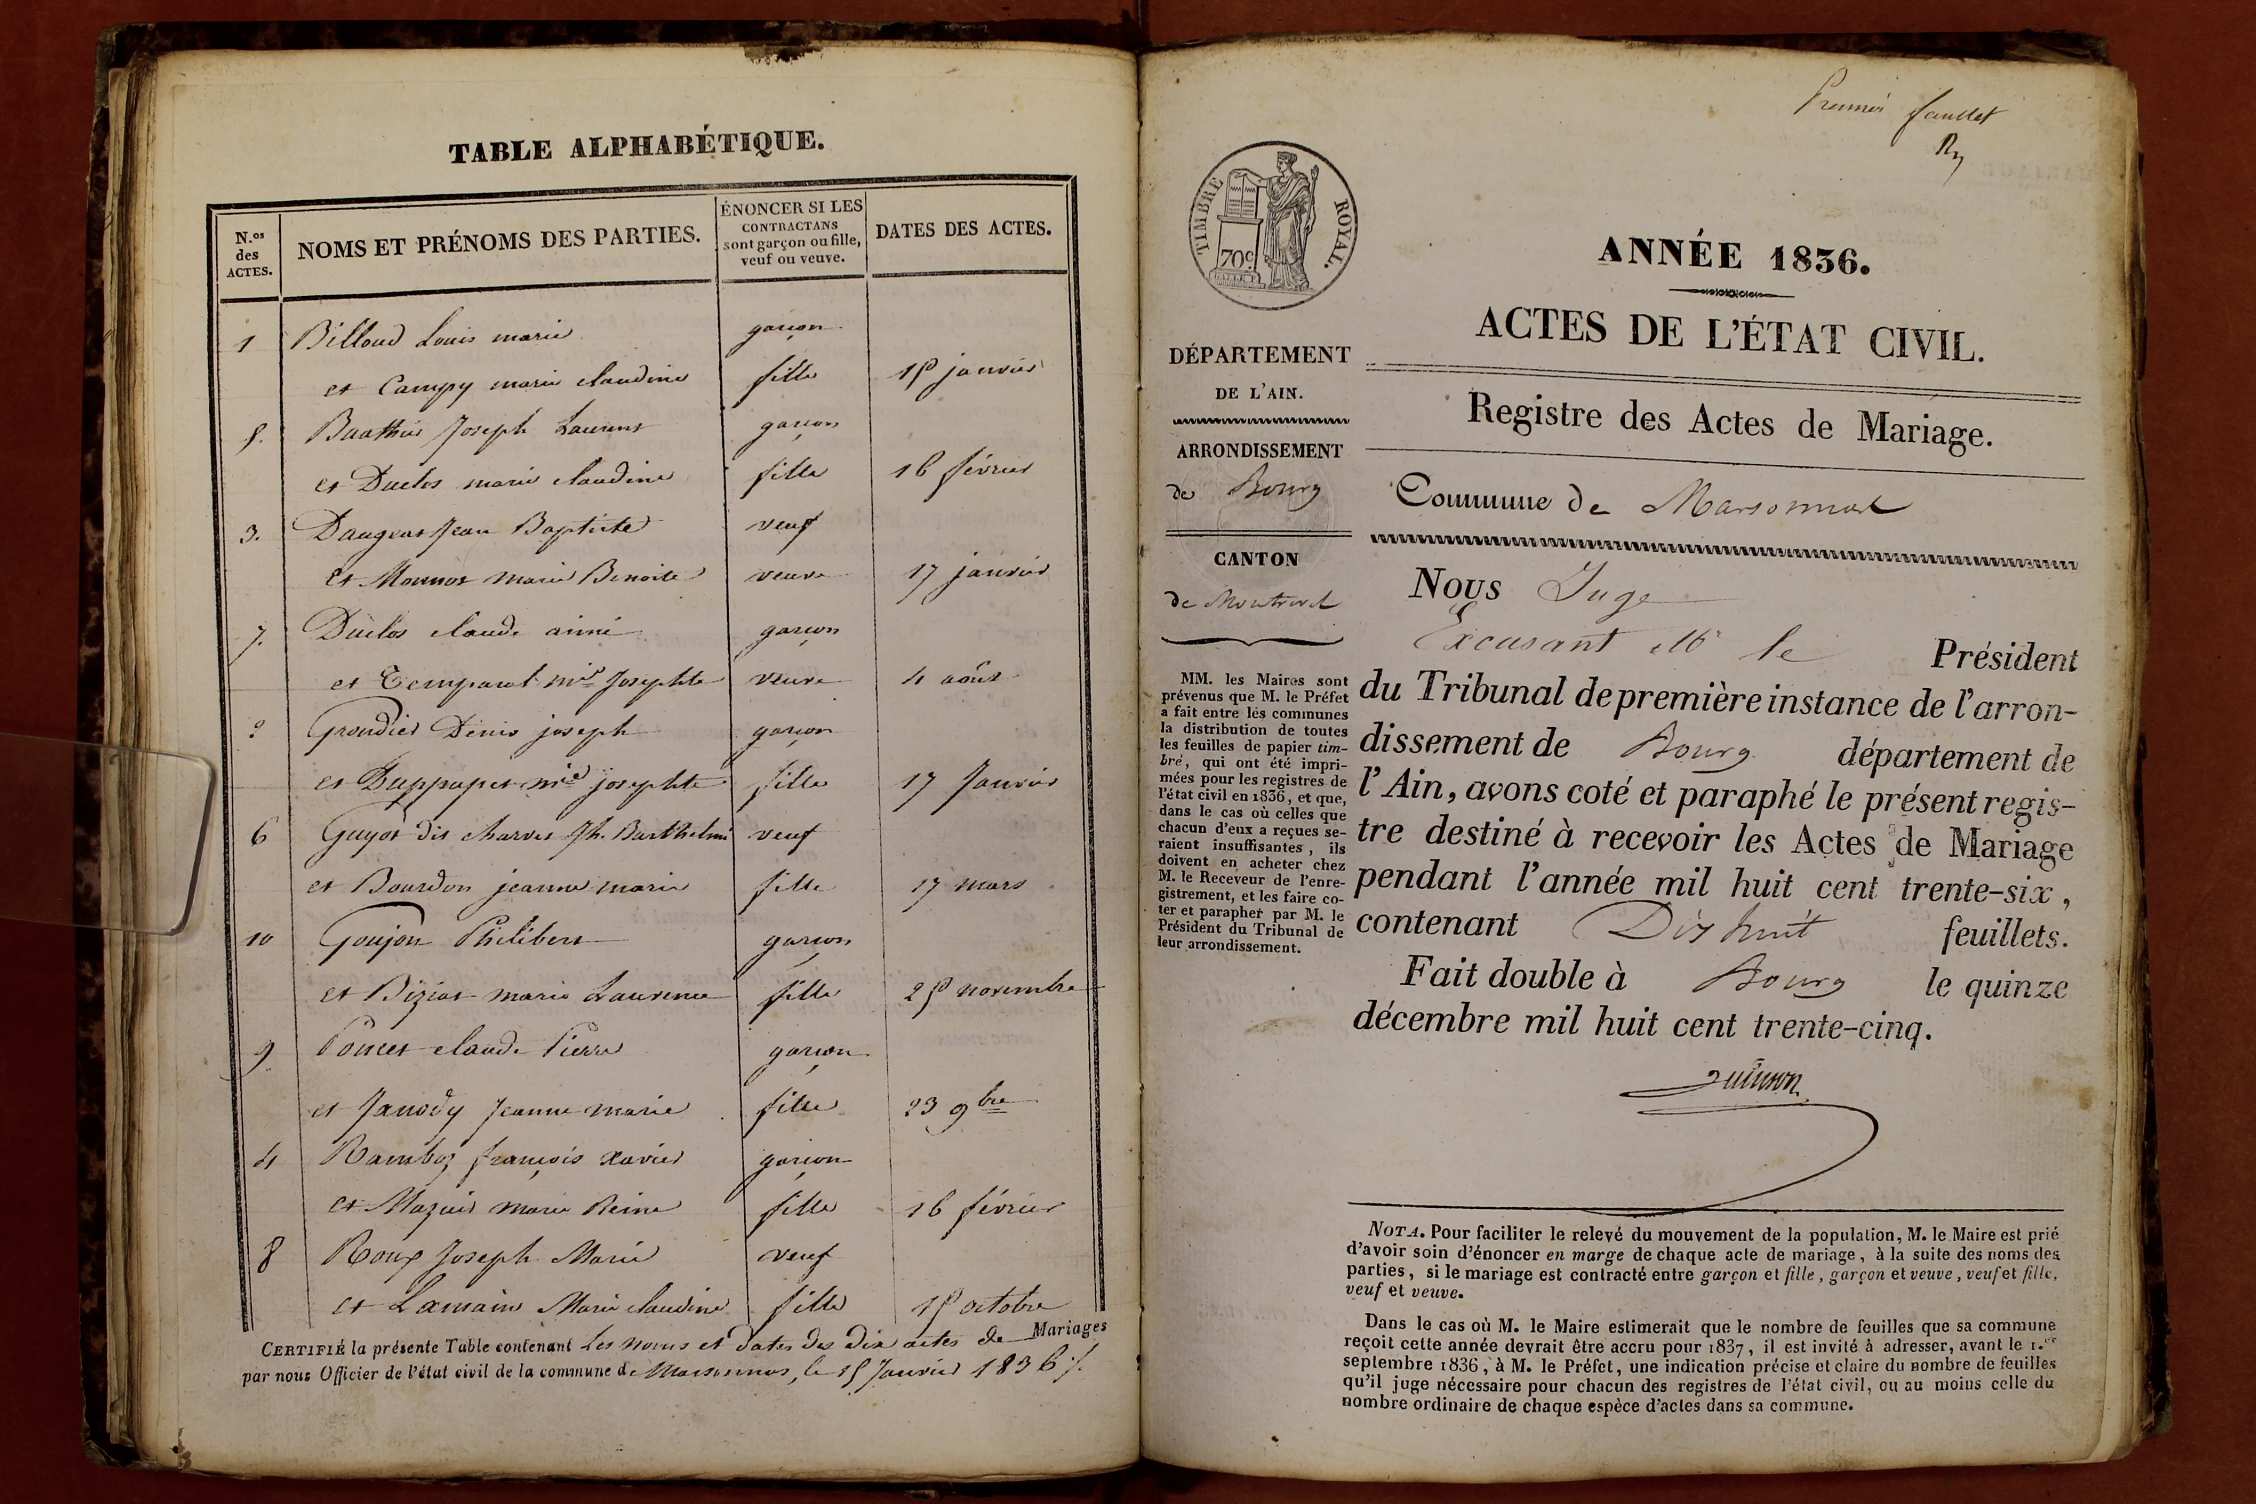 TABLE ALPHABÉTIQUE.
N.os des ACTES.
NOMS ET PRÉNOMS DES PARTIES.
ÉNONCER SI LES
CONTRACTANS
sont garçon ou fille,
veuf ou veuve.
DATES DES ACTES.
1 Billoud Louis marie garçon
et Campy marie claudine fille 15 janvier
5. Joseph Laurent garçon
et Duclos marie claudine fille 16 février
3. Dangeas Jean Baptiste veuf
et Monnot marie Benoite veuve 17 janvier
7. Duclos claude aimé garçon
et mie Josephte veuve 4 août
2 Grondier Denis joseph garçon
et mie josephte fille 17 Janvier
6 Guyot dit charves Jh. Barthelmi veuf
et Bourdon jeanne marie fille 17 mars
10 Goujon Philibert garçon
et Biziat marie Laurence fille 25 novembre
9 Poncet claude Pierre garçon
et Janody Jeanne marie fille 23 9bre
4 Ramboz françois xavier garçon
et Mazuir marie Reine fille 16 février
8 Roux Joseph Marie veuf
et Lamain Marie claudine fille 15 octobre
CERTIFIÉ la présente Table contenant Les noms et dates des dix actes de Mariages
par nous Officier de l'état civil de la commune de Marsonnas, le 15 Janvier 1836 /.
Premier feuillet
TIMBRE ROYAL.
70c
ANNÉE 1836.
ACTES DE L'ÉTAT CIVIL.
DÉPARTEMENT
DE L'AIN.
Registre des Actes de Mariage.
ARRONDISSEMENT
de Bourg
Commune de Marsonnat
CANTON
de Montrevel
MM. les Maires sont
prévenus que M. le Préfet
a fait entre les communes
la distribution de toutes
les feuilles de papier tim-
bré, qui ont été impri-
mées pour les registres de
l'état civil en 1836, et que,
dans le cas où celles que
chacun d'eux a reçues se-
raient insuffisantes, ils
doivent en acheter chez
M. le Receveur de l'enre-
gistrement, et les faire co-
ter et parapher par M. le
Président du Tribunal de
leur arrondissement.
Nous Juge
Excusant Mr le Président
du Tribunal de première instance de l'arron-
dissement de Bourg département de
l'Ain, avons coté et paraphé le présent regis-
tre destiné à recevoir les Actes de Mariage
pendant l'année mil huit cent trente-six,
contenant Dix huit feuillets.
Fait double à Bourg le quinze
décembre mil huit cent trente-cinq.
NOTA. Pour faciliter le relevé du mouvement de la population, M. le Maire est prié
d'avoir soin d'énoncer en marge de chaque acte de mariage, à la suite des noms des
parties, si le mariage est contracté entre garçon et fille, garçon et veuve, veuf et fille,
veuf et veuve.
Dans le cas où M. le Maire estimerait que le nombre de feuilles que sa commune
reçoit cette année devrait être accru pour 1837, il est invité à adresser, avant le 1.er
septembre 1836, à M. le Préfet, une indication précise et claire du nombre de feuilles
qu'il juge nécessaire pour chacun des registres de l'état civil, ou au moins celle du
nombre ordinaire de chaque espèce d'actes dans sa commune.